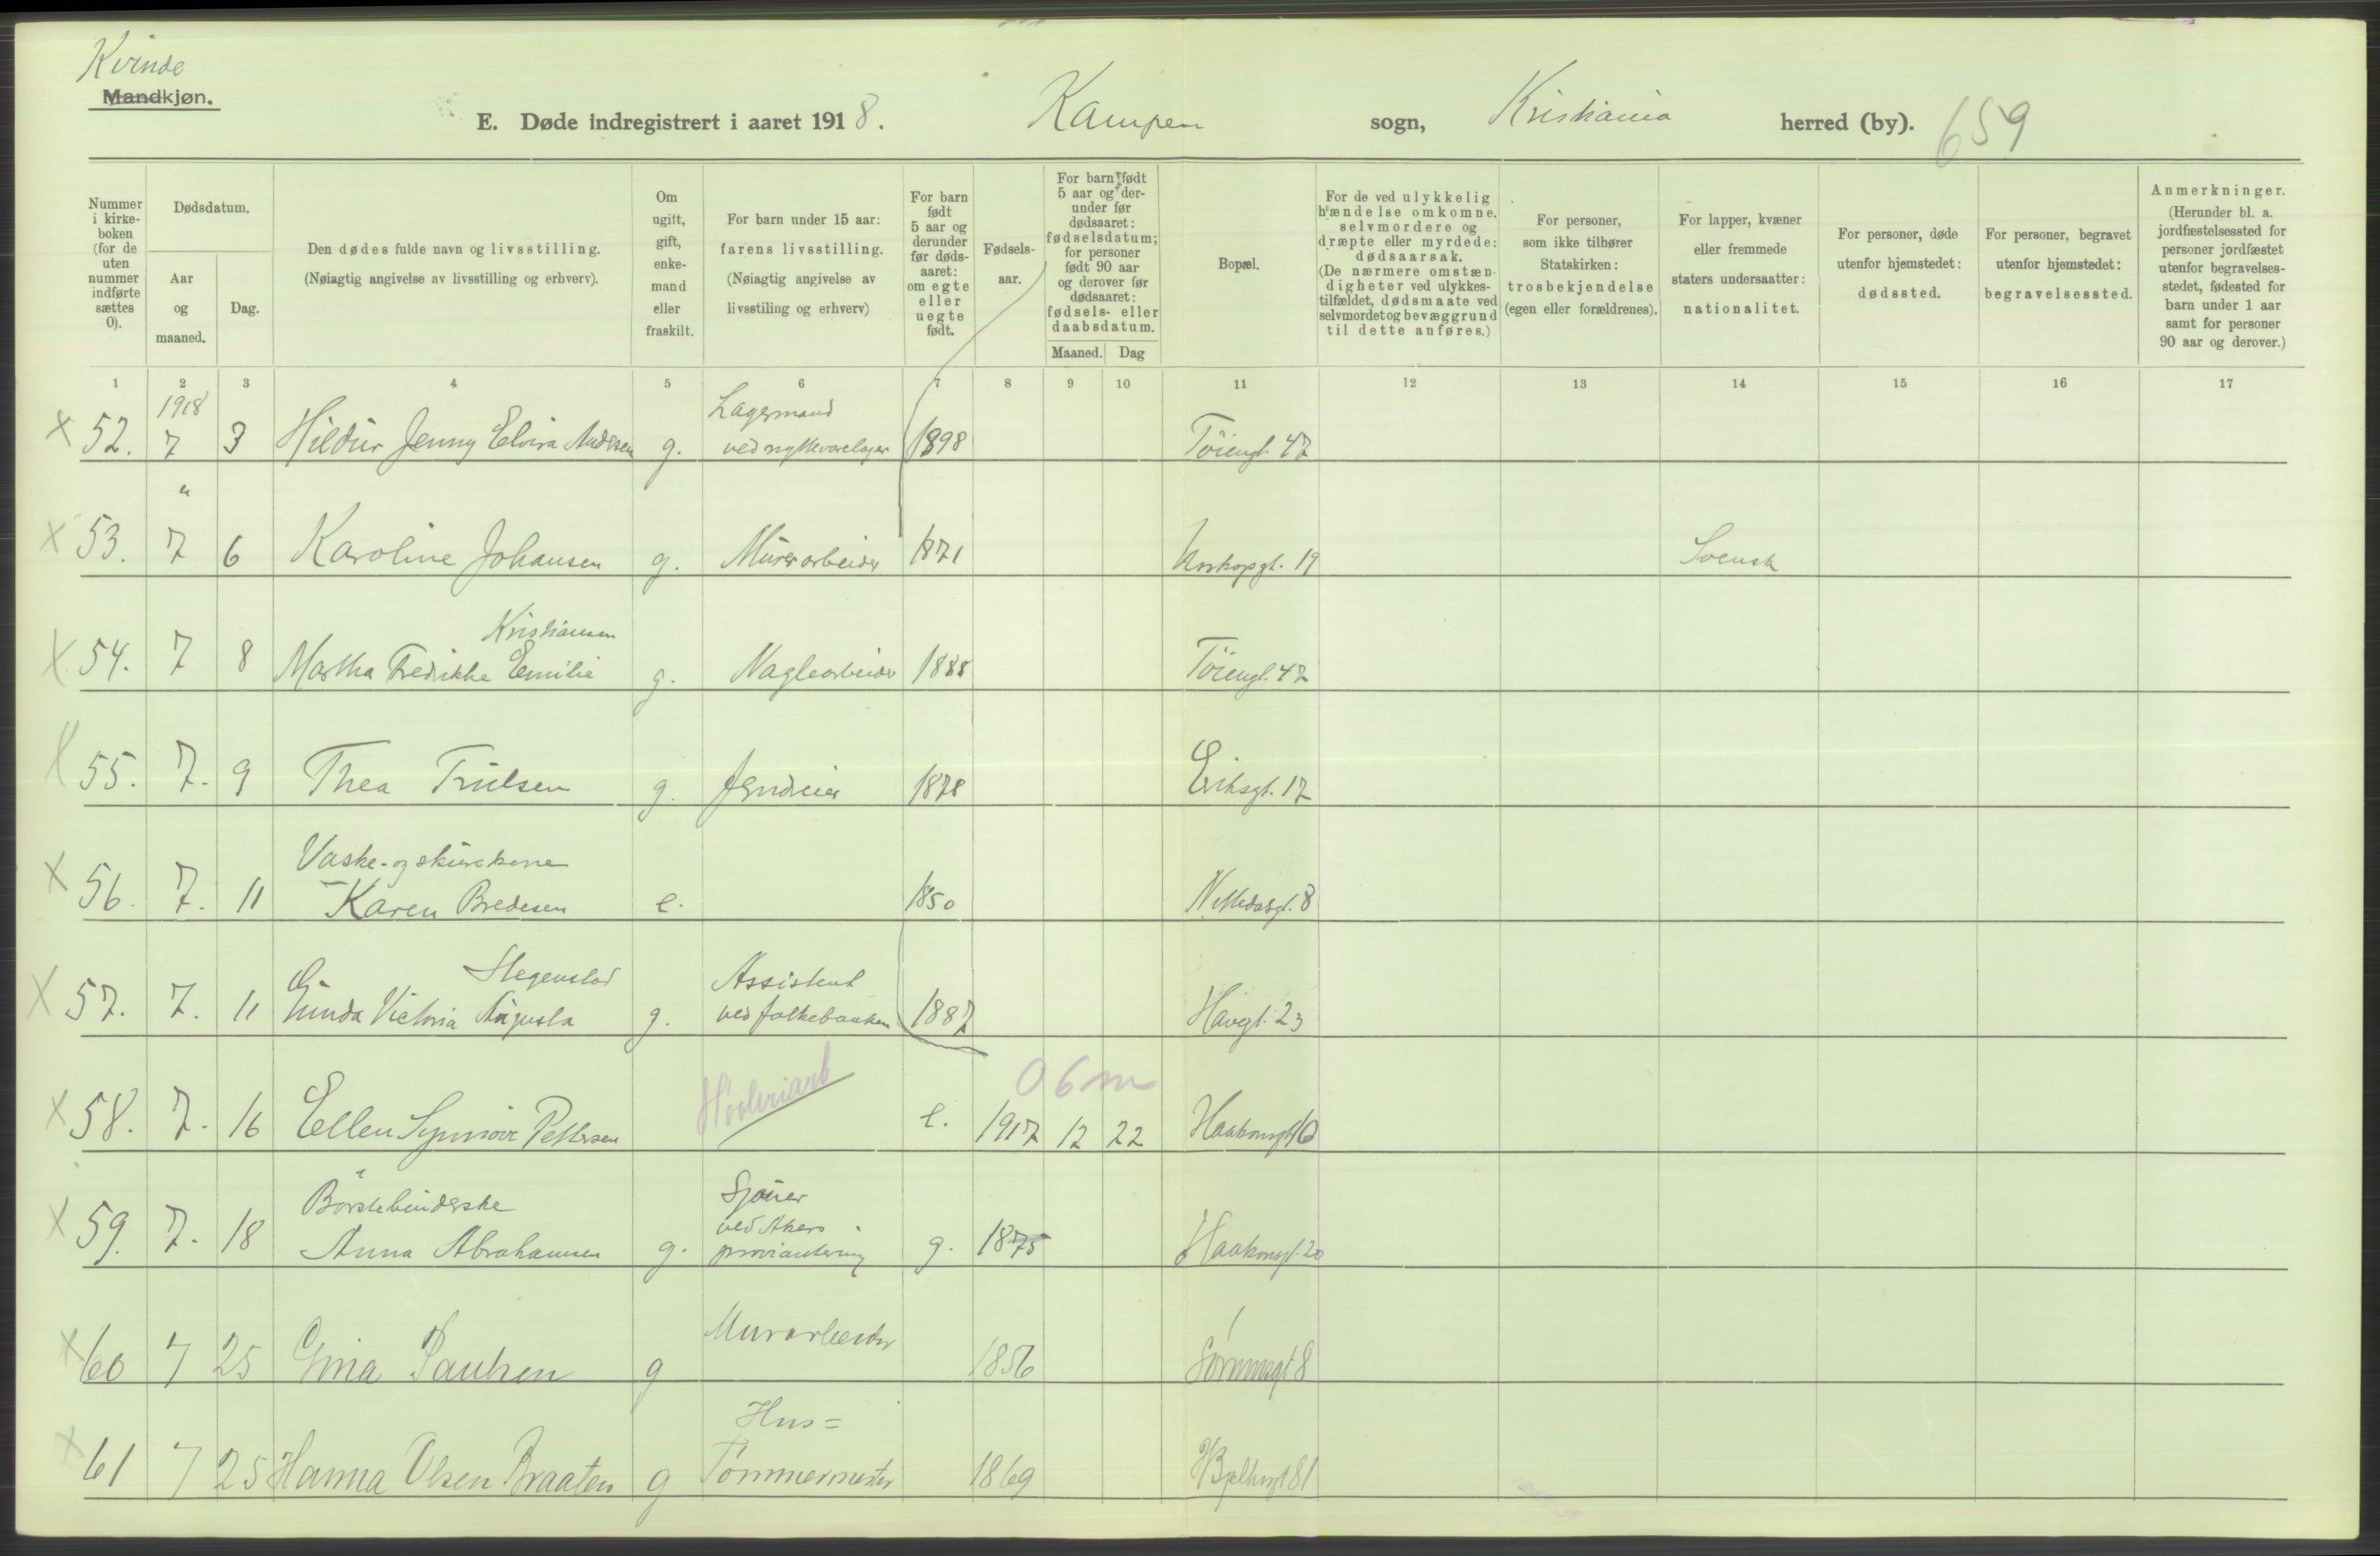 Kvinde
Mandkjøn.
E. Døde indregistrert i aaret 1918. Kampen sogn, Kristiania herred (by). 659
Nummer i kirke-boken (for de uten nummer indførte sættes 0).
Dødsdatum.
Aar og maaned.
Dag.
Den dødes fulde navn og livsstilling.
(Nøiagtig angivelse av livsstilling og erhverv).
Om ugift, gift, enke-mand eller fraskilt.
For barn under 15 aar: farens livsstilling. (Nøiagtig angivelse av livsstiling og erhverv)
For barn født 5 aar og derunder før døds-aaret: om egte eller uegte født.
Fødsels-aar.
For barn født 5 aar og der-under før dødsaaret: fødselsdatum; for personer født 90 aar og derover før dødsaaret: fødsels- eller daabsdatum.
Maaned. Dag
Bopæl.
For de ved ulykkelig hændelse omkomne, selvmordere og dræpte eller myrdede: dødsaarsak. (De nærmere omstæn-digheter ved ulykkes-tilfældet, dødsmaate ved selvmordet og bevæggrund til dette anføres.)
For personer, som ikke tilhører Statskirken: trosbekjendelse (egen eller forældrenes).
For lapper, kvæner eller fremmede staters undersaatter: nationalitet.
For personer, døde utenfor hjemstedet: dødssted.
For personer, begravet utenfor hjemstedet: begravelsessted.
Anmerkninger. (Herunder bl. a. jordfæstelsessted for personer jordfæstet utenfor begravelses-stedet, fødested for barn under 1 aar samt for personer 90 aar og derover.)
1 2 3 4 5 6 7 8 9 10 11 12 13 14 15 16 17
1918 Lagermand
x 52. 7 3 Hildur Jenny Elvira Andersen g. ved 1898 Töiengt. 47
"
x 53. 7 6 Karoline Johansen g. Murerarbeider 1871 19 Svensk
Kristiansen
x 54. 7 8 Martha Fredrikke Emilie g. Naglearbeider 1888 Töiengt. 47
x 55. 7. 9 Thea Trulsen g. 1878 Eriksgt. 17
Vaske- og skurekone
x 56. 7. 11 Karen Bredesen e. 1850 8
Stegenstad Assistent
x 57. 7. 11 Gunda Victoria Augusta g. ved folkebanken 1887 Haugt. 23
06m
x 58. 7. 16 Ellen Synnöve Pettersen e. 1917 12 22 Haakonsgt
Börstebinderske Sjouer
ved Akers
x 59. 7. 18 Anna Abrahamsen g. proviantering g. 1875 Haakonsgt. 20
Murarbeider
x 60 7 25 Gina Paulsen g 1856 8
Hus=
x 61 7 25 Hanna Olsen Braaten g Tömmermester 1869 81